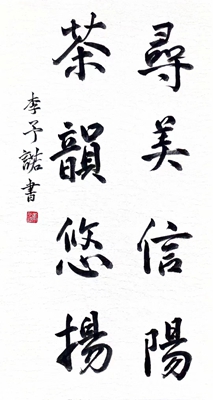 尋美信陽
茶韻悠揚
李予諾書